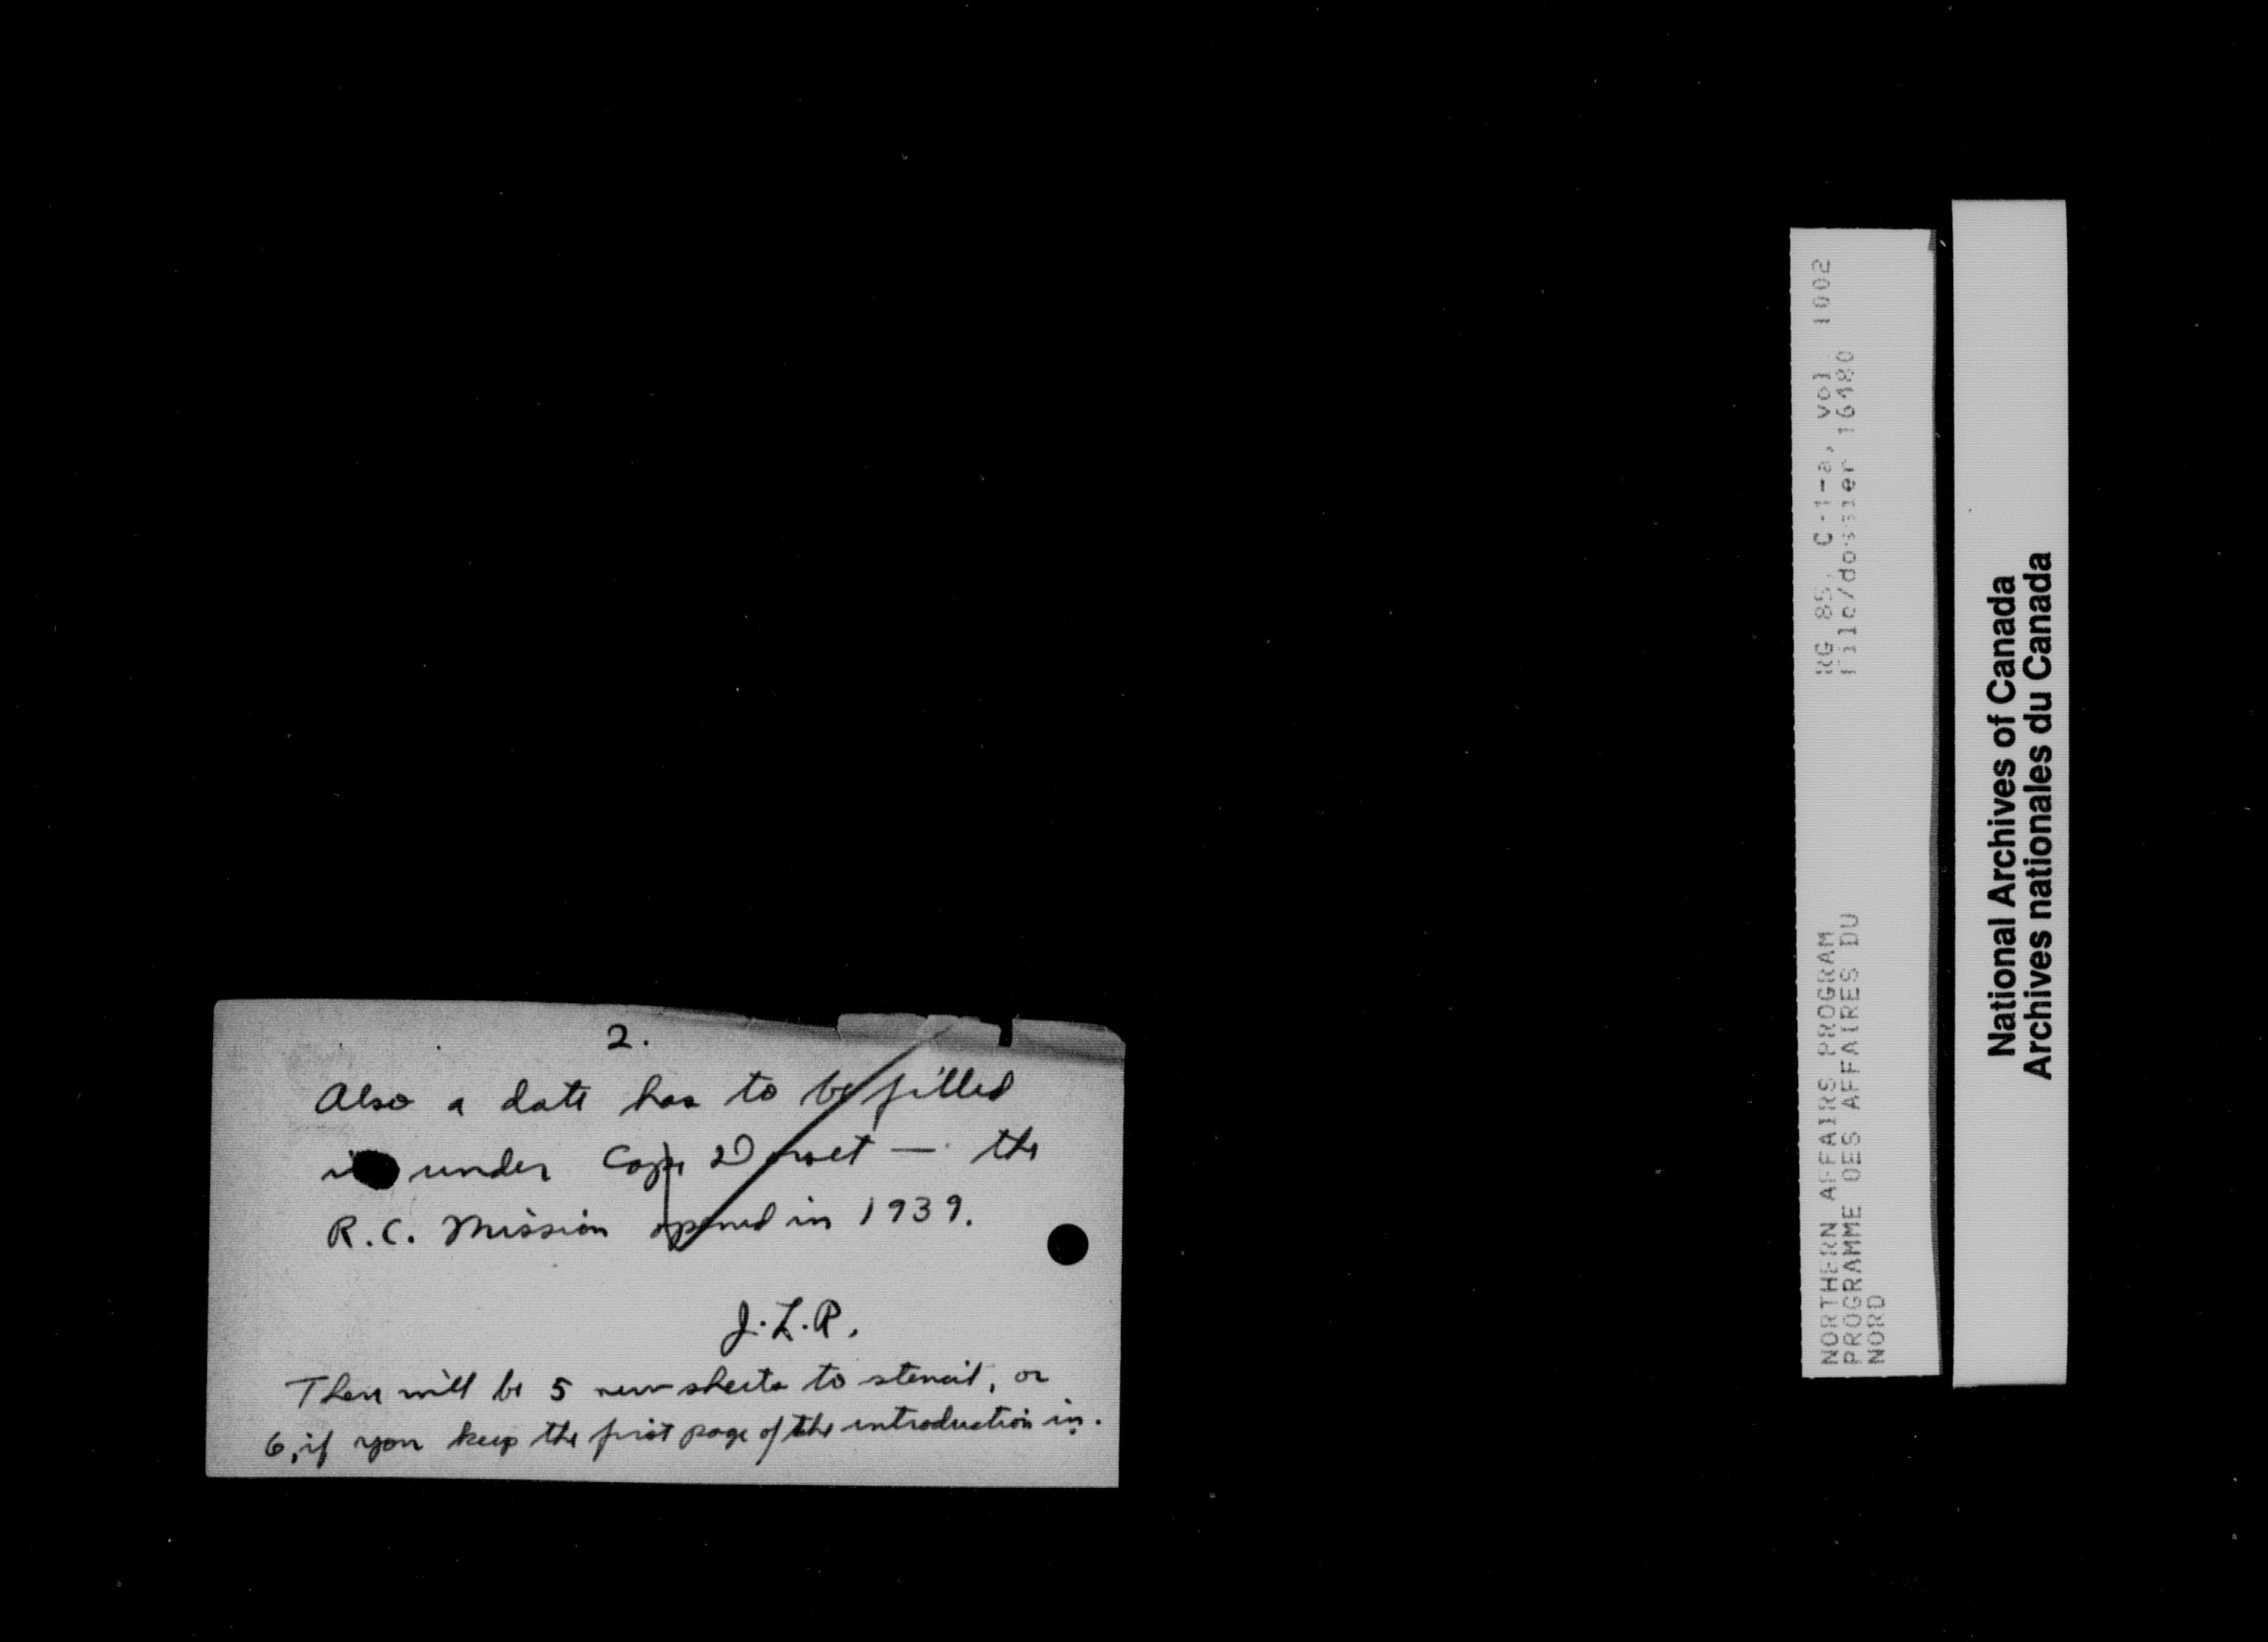 2.
Also a date has to be filled
in under Cape Dorset — the
R.C. Mission opened in 1939.
J.L.R.
There will be 5 new sheets to stencil, or
6, if you keep the first page of the introduction in.
RG 85, C-1-a, vol. 1002
file/dossier 16480
NORTHERN AFFAIRS PROGRAM
PROGRAMME DES AFFAIRES DU
NORD
National Archives of Canada
Archives nationales du Canada